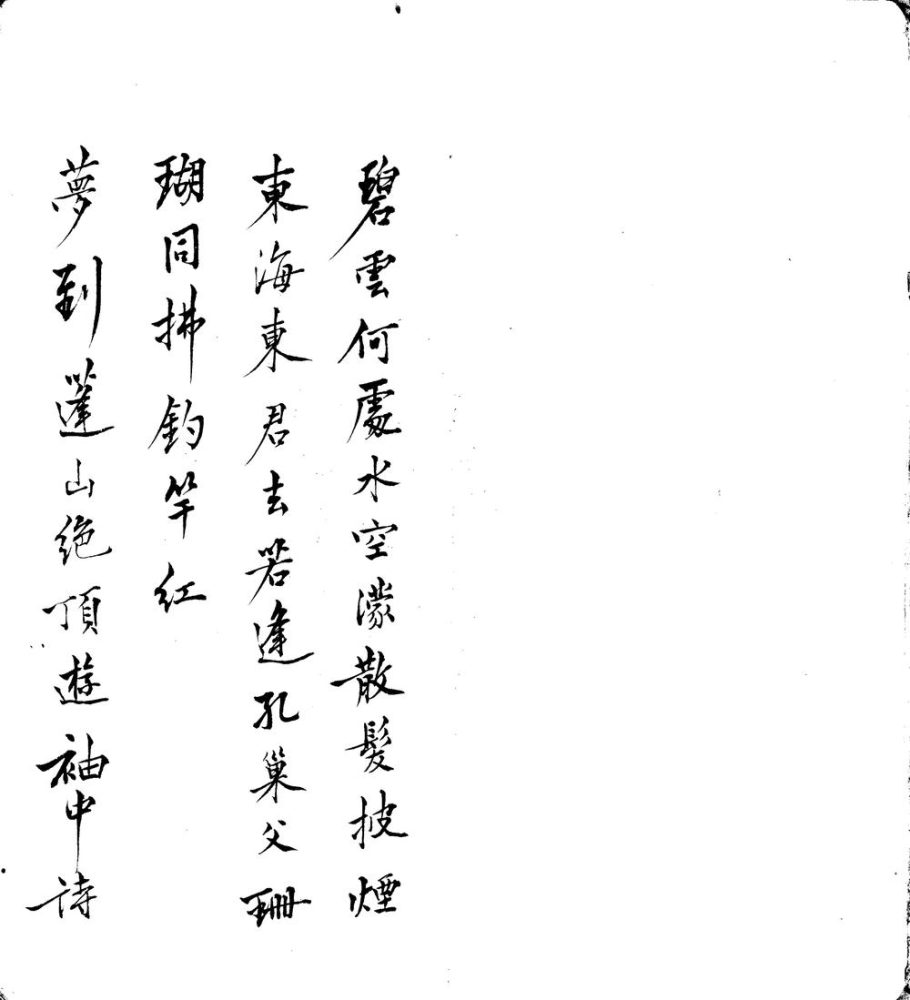 碧雲何處水空濛散髮披煙
東海東君去若逢孔巢父珊
瑚同拂釣竿紅
夢到蓬山絕頂遊袖中詩